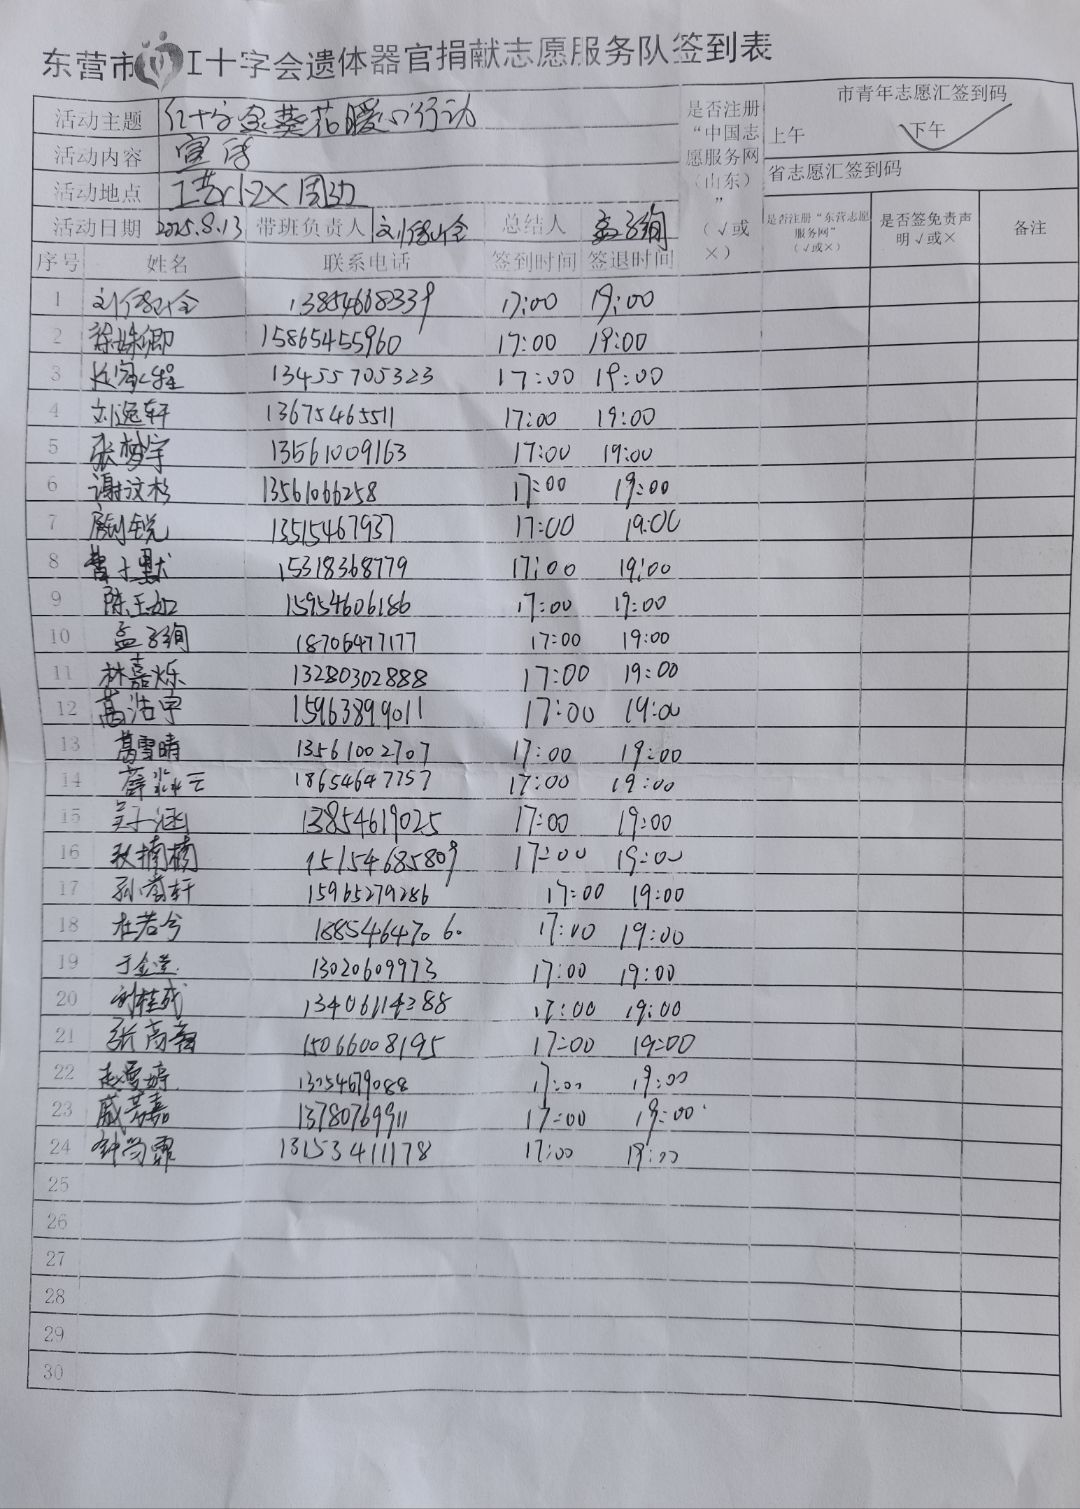 东营市 工十字会遗体器官捐献志愿服务队签到表
活动主题 红十字会葵花暖心行动
活动内容 宣传
活动地点 周边
活动日期 2025.8.13 带班负责人 总结人 孟子绚
是否注册“中国志愿服务网（山东）”（√或×）
市青年志愿汇签到码
上午 下午
省志愿汇签到码
是否注册“东营志愿服务网”（√或×） 是否签免责声明√或× 备注
序号 姓名 联系电话 签到时间 签退时间
1 13854668339 17:00 19:00
2 15865455960 17:00 19:00
3 13455705323 17:00 19:00
4 刘逸轩 13675465511 17:00 19:00
5 张梦宇 13561009163 17:00 19:00
6 谢汶杉 13561066258 17:00 19:00
7 13515467937 17:00 19:00
8 曹子默 15318368779 17:00 19:00
9 15954606186 17:00 19:00
10 孟子绚 18706477177 17:00 19:00
11 林嘉烁 13280302888 17:00 19:00
12 高浩宇 15963899011 17:00 19:00
13 葛雪晴 13561002707 17:00 19:00
14 18654647757 17:00 19:00
15 吴子涵 13854619025 17:00 19:00
16 15154685809 17:00 19:00
17 15965279286 17:00 19:00
18 杜若兮 17:00 19:00
19 13020609973 17:00 19:00
20 刘桂成 13406114388 17:00 19:00
21 15066008195 17:00 19:00
22 赵雪婷 17:00 19:00
23 13780769911 17:00 19:00
24 17:00 19:00
25
26
27
28
29
30